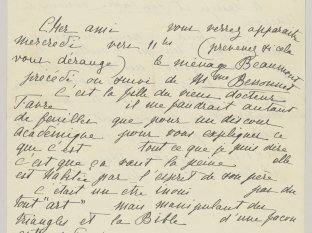 Cher ami vous verrez apparaitre
mercredi vers 11h (prevenez si cela
vous dérange) le ménage Beaumont
précédé ou suivi de Mme Bessonnet
C'est la fille du vieux docteur
Favre il me faudrait autant
de feuilles que pour un discours
académique pour vous expliquer ce
que c'est tout ce que je puis dire
c'est que ça vaut la peine elle
est habitée par l'esprit de son père
C'était un être inouï pas du
tout "art" mais manipulant des
triangles et la Bible d'une façon